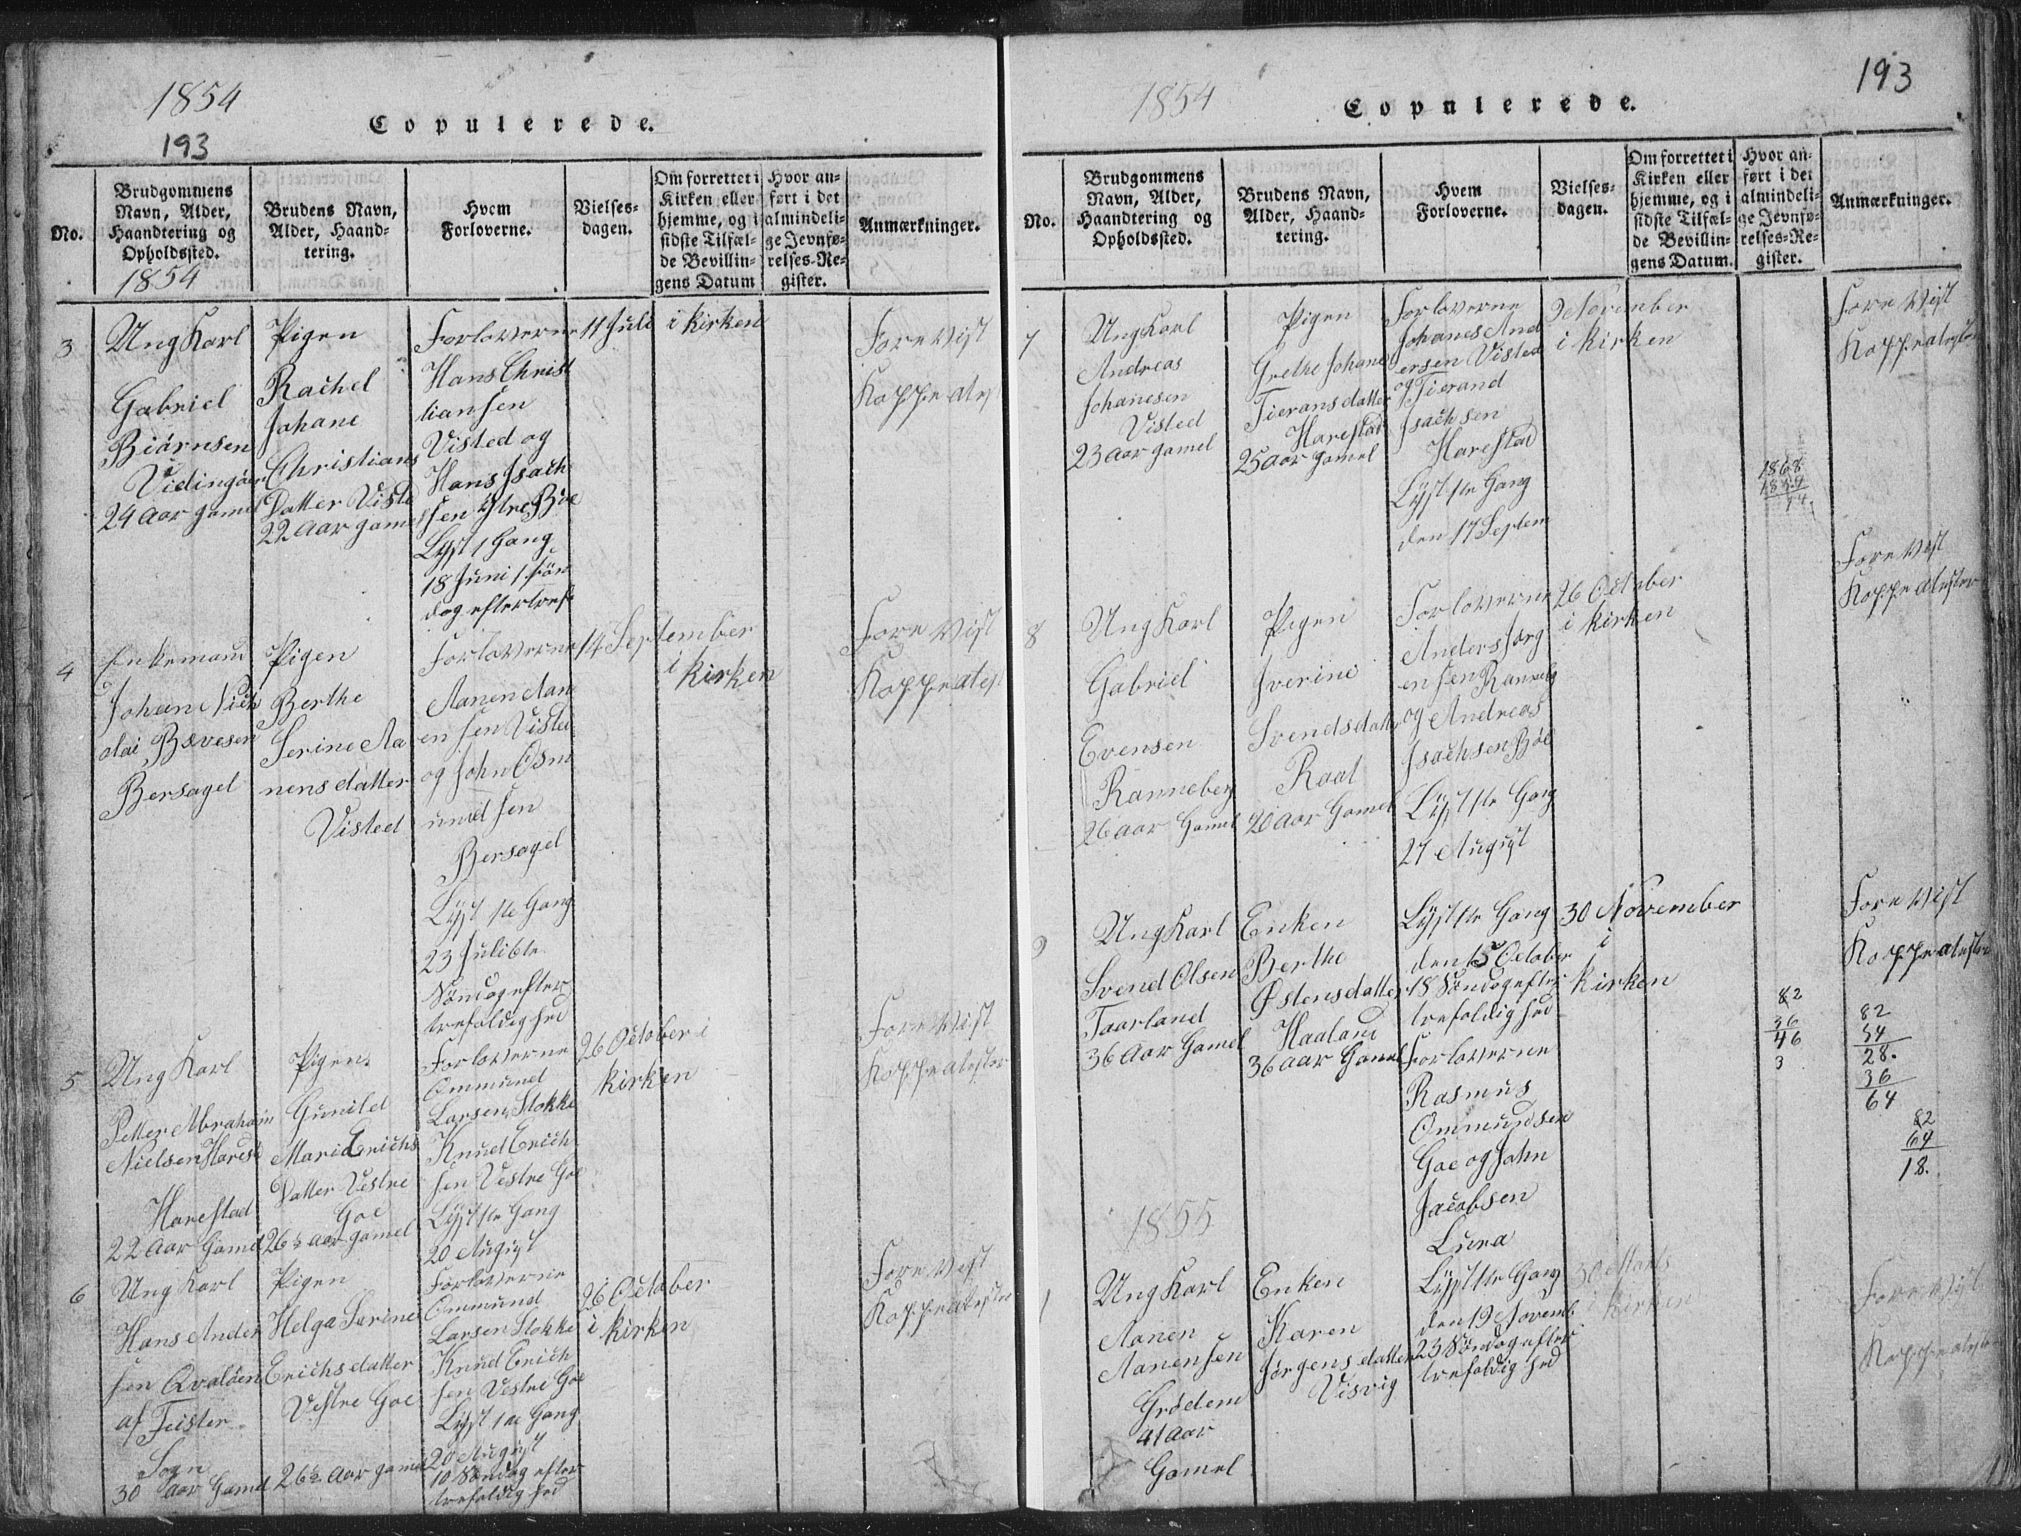 1854
Copulerede.
193
No.
Brudgommens
Navn, Alder,
Haandtering og
Opholdssted.
1854
Brudens Navn,
Alder, Haand-
tering.
Hvem
Forloverne.
Vielses-
dagen.
Om forrettet i
Kirken eller
hjemme, og i
sidste Tilfæl-
de Bevillin-
gens Datum
Hvor an-
ført i det
almindeli-
ge Jevnfø-
relses-Re-
gister.
Anmærkninger.
3
Ung Karl
Gabriel
Biörnsen
Vidingöen
24 Aar gamel
Pigen
Rachel
Johane
Christians
Datter Viste
22 Aar gamel
Forloverne
Hans Christ
iansen
Visted og
Hans Isach
sen Ytre Böe
Lyst 1 Gang
18 Juni 1 Sön
dag eftertref
11 Juli
i kirken
Forevist
Koppeatest
4
Enkemann
Johan Nich
olai
Bersagel
Pigen
Berthe
Serine Aa
nensdatter
Visted
Forloverne
Aanen Aan
ensen Visted
og John Osm
undsen
Bersagel
Lyst 1te Gang
23 Juli 6te
Söndag efter
trefoldighed
14 September
i kirken
Forevist
Koppeatest
5
Ung Karl
Petter Abraham
Nielsen
Harestad
22 Aar Gamel
Pigen
Gunild
Marie Erichs
Datter Vestre
Goe
26½ aar gamel
Forloverne
Ommund
Larsen Stokke
Knud Erich
sen Vestre Goe
Lyst 1te Gang
20 August
26 October i
kirken
Forevist
Koppeatester
6
Ung Karl
Hans Ander
sen
af Feister
Sogn
30 Aar Gamel
Pigen
Helga Serine
Erichsdatter
Vestre Goe
26½ Aar gamel
Forloverne
Ommund
Larsen Stokke
Knud Erich
sen Vestre Goe
Lyst 1te Gang
20 August
10 Söndag efter
trefoldighed
26 October
i kirken
Forevist
Koppeatester
1854
Copulerede.
193
No.
Brudgommens
Navn, Alder,
Haandtering og
Opholdssted.
Brudens Navn,
Alder, Haand-
tering.
Hvem
Forloverne.
Vielses-
dagen.
Om forrettet i
Kirken eller
hjemme, og i
sidste Tilfæl-
de Bevillin-
gens Datum.
Hvor an-
ført i det
almindeli-
ge Jevnfø-
relses-Re-
gister.
Anmærkninger.
7
Ung Karl
Andreas
Johanesen
Visted
23 Aar gamel
Pigen
Grethe Johane
Tieransdatter
Harestad
25 Aar gamel
Forloverne
Johanes And
ersen Visted
og Tierand
Isachsen
Harestad
Lyst 1te Gang
den 17 Septem
2 November
i kirken
1868
1854
14
Forevist
Koppeatester
8
Ung Karl
Gabriel
Evensen
Ranneberg
26 Aar Gamel
Pigen
Iverine
Svendsdatter
Raal
20 Aar Gamel
Forloverne
Anders Jörg
ensen Ranneb
og Andreas
Isachsen Böe
Lyst 1te Gang
27 August
26 October
i kirken
Forevist
Koppeatester
9
Ung Karl
Svend Olsen
Taarland
36 Aar Gamel
Enken
Berthe
Östensdatter
Haaland
36 Aar Gamel
Lyst 1te Gang
den 15 October
18 Söndag efter
trefoldighed
Forloverne
Rasmus
Ommundsen
Goe og John
Jacobsen
Lura
30 November
i
kirken
82
36
46
3
Forevist
Koppeatester
82
54
28.
36
64
82
64
18.
1855
1
Ung Karl
Aanen
Aanensen
Grödem
41 Aar
Gamel
Enken
Karen
Jörgensdatter
Visvig
Lyst 1te Gang
den 19 Novemb
23 Söndag efter
trefoldighed
30 Marts
i kirken
Forevist
Koppeatester